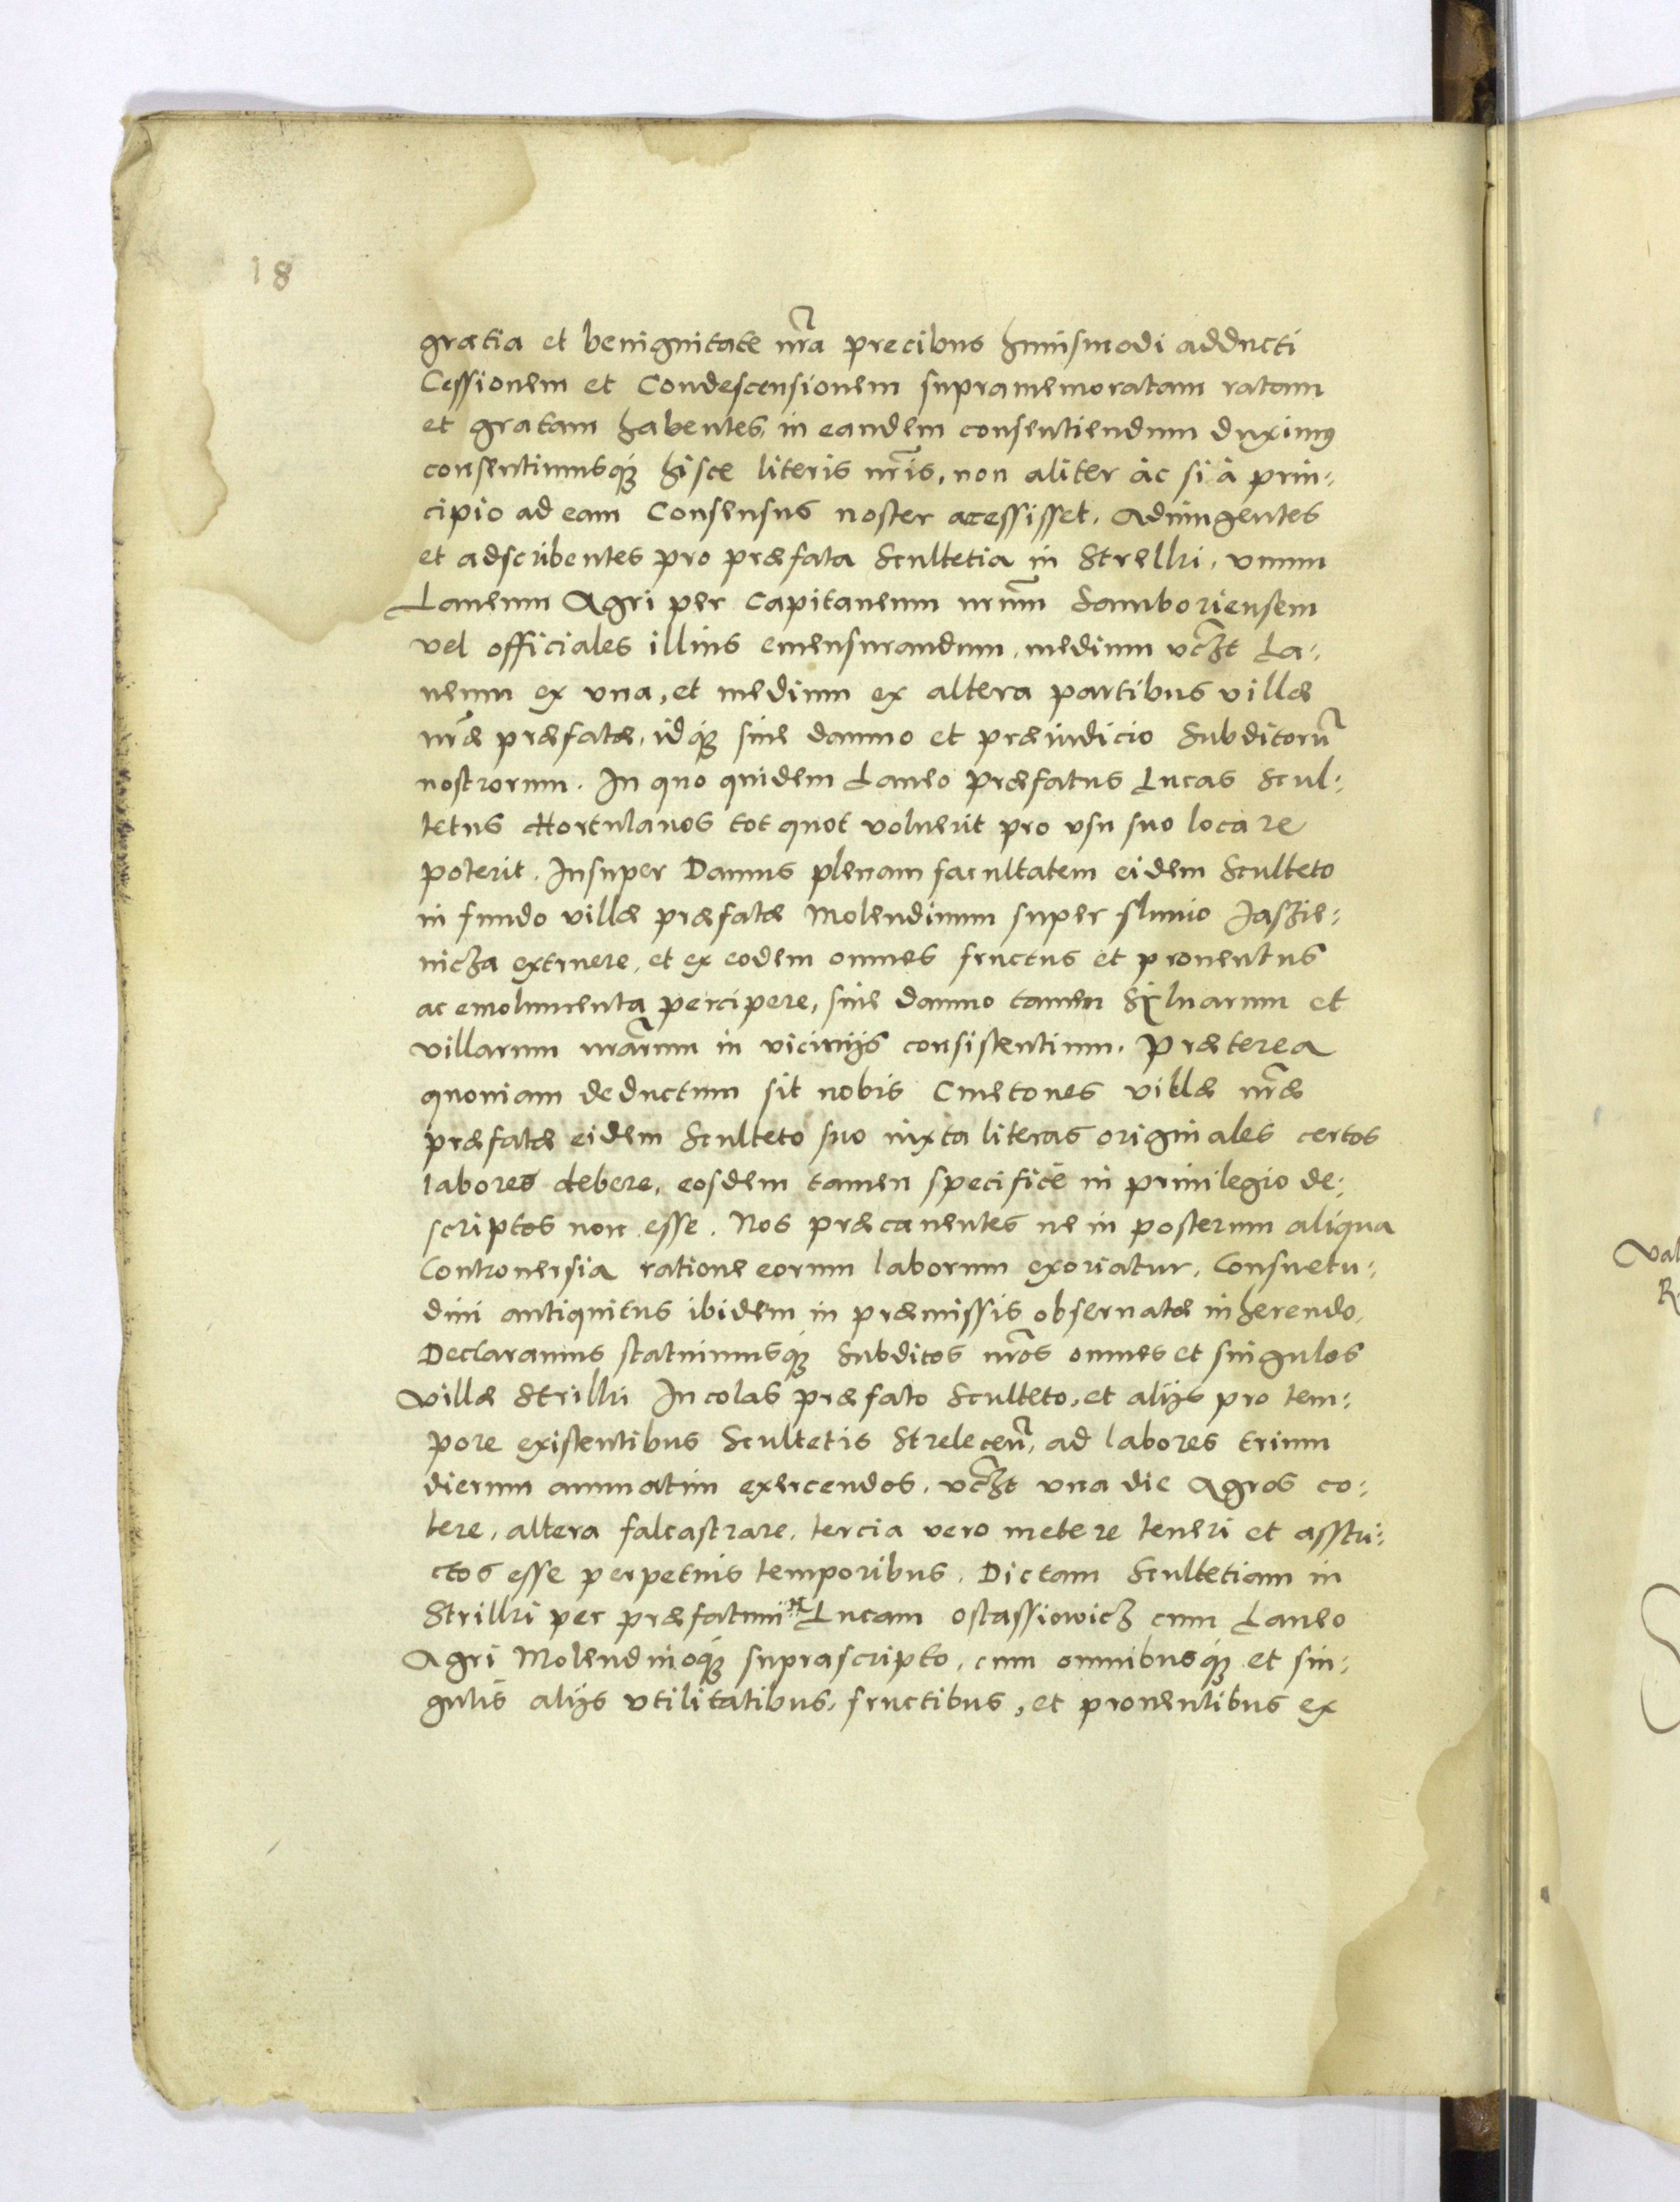 18
gratia et benignitate nr̃a precibus huiusmodi adducti
Cessionem et Condescensionem supramemoratam ratam
et gratam habentes, in eandem consentiendum duximus
consentimusq́; hisce literis nr̃is, non aliter ác si á prin:
cipio ad eam Consensus noster acessisset. Adiungentes
et adscribentes pro præfata Scultetia in Strelki, vnum
Laneum Agri per Capitaneum nrũm Samboriensem
vel officiales illius emensurandum, medium vc̃zt La:
neum ex vna, et medium ex altera partibus villæ
nr̃æ præfatæ, idq́; sine damno et præiudicio Subditorũ
nostrorum. In quo quidem Laneo præfatus Lucas Scul:
tetus Hortulanos tot quot voluerit pro vsu suo locare
poterit. Insuper Damus plenam facultatem eidem Sculteto
in fundo villæ præfatæ Molendinum super fluuio Jaszie:
nicza extruere, et ex eodem omnes fructus et prouentus
ac emolumenta percipere, sine damno tamen Syluarum et
villarum nrãrum in vicinijs consistentium. Præterea
quoniam deductum sit nobis Cmetones villæ nr̃æ
præfatæ eidem Sculteto suo iuxta literas originales certos
labores debere, eosdem tamen specificé in priuilegio de:
scriptos non esse. Nos præcauentes ne in posterum aliqua
Controuersia ratione eorum laborum exoriatur, Consuetu:
dini antiquitus ibidem in præmissis obseruatæ inherendo,
Declaramus statuimusq́; Subditos nr̃os omnes et singulos
villæ Strilki Incolas præfato Sculteto, et alijs pro tem:
pore existentibus Scultetis Strelecen̄, ad labores trium
dierum annuatim exercendos, vc̃zt vna die Agros co:
lere, altera falcastrare, tercia vero metere teneri et asstri:
ctos esse perpetuis temporibus. Dictam Scultetiam in
Strilki per præfatum Lucam Ostassiowicz cum Laneo
Agri Molendinoq́; suprascripto, cum omnibusq́; et sin:
gulis alijs vtilitatibus, fructibus, et prouentibus ex